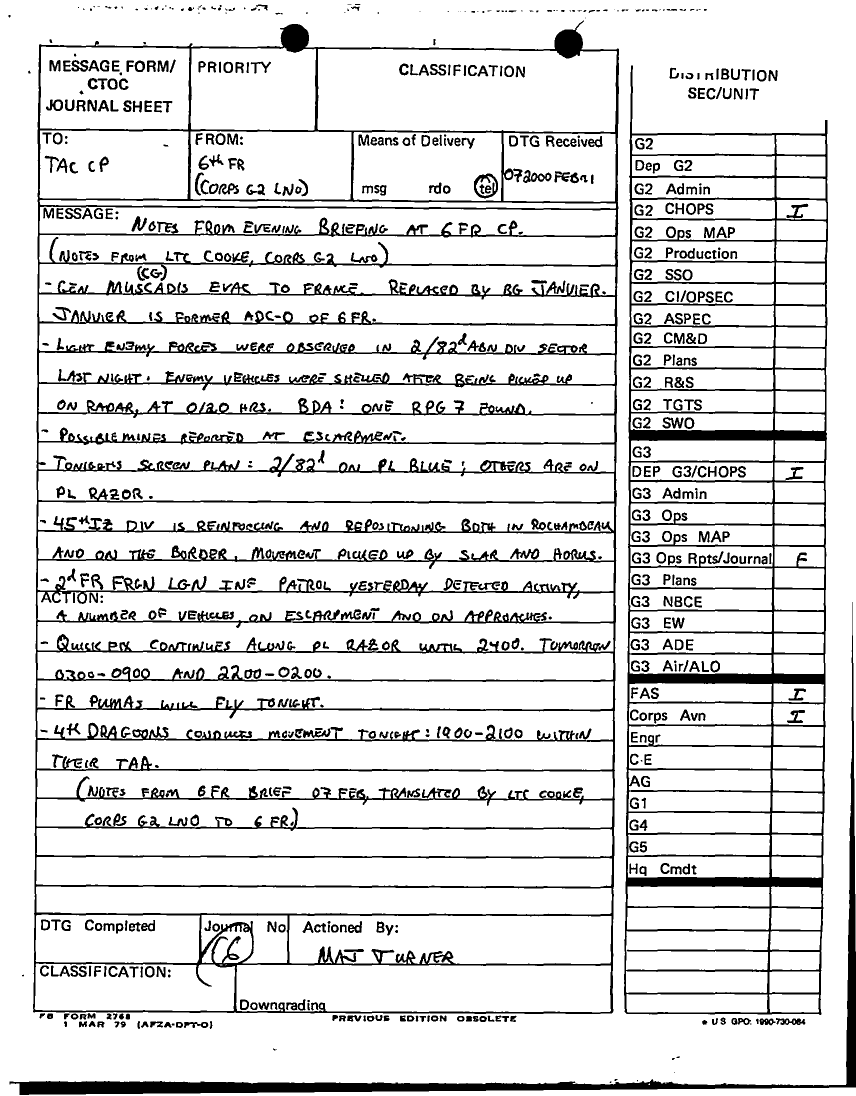 MESSAGE FORM/
CTOC
JOURNAL SHEET
PRIORITY
CLASSIFICATION
DISTRIBUTION
SEC/UNIT
TO:
TAC CP
FROM:
6th FR
(CORPS G2 LNO)
Means of Delivery
msg rdo tel
DTG Received
072000FEB91
MESSAGE: NOTES FROM EVENING BRIEFING AT 6 FR CP.
(NOTES FROM LTC COOKE, CORPS G2 LNO)
(CG)
- GEN MUSCADIS EVAC TO FRANCE. REPLACED BY BG JANVIER.
JANVIER IS FORMER ADC-O OF 6 FR.
- LIGHT ENEMY FORCES WERE OBSERVED IN 2/82d ABN DIV SECTOR
LAST NIGHT. ENEMY VEHICLES WERE SHELLED AFTER BEING PICKED UP
ON RADAR, AT 0120 HRS. BDA: ONE RPG 7 FOUND.
- POSSIBLE MINES REPORTED AT ESCARPMENT.
- TONIGHT'S SCREEN PLAN: 2/82d ON PL BLUE; OTHERS ARE ON
PL RAZOR.
- 45th IZ DIV IS REINFORCING AND REPOSITIONING BOTH IN ROCHAMBEAU
AND ON THE BORDER, MOVEMENT PICKED UP BY SLAR AND HORUS.
- 2d FR FRGN LGN INF PATROL YESTERDAY DETECTED ACTIVITY,
ACTION:
A NUMBER OF VEHICLES, ON ESCARPMENT AND ON APPROACHES.
- QUICK FIX CONTINUES ALONG PL RAZOR UNTIL 2400. TOMORROW
0300-0900 AND 2200-0200.
- FR PUMAS WILL FLY TONIGHT.
- 4th DRAGOONS CONDUCTS MOVEMENT TONIGHT: 1900-2100 WITHIN
THEIR TAA.
(NOTES FROM 6 FR BRIEF 07 FEB, TRANSLATED BY LTC COOKE,
CORPS G2 LNO TO 6 FR.)
DTG Completed
Journal No
16
Actioned By:
MAJ TURNER
CLASSIFICATION:
Downgrading
FB FORM 2768
1 MAR 79 (AFZA-DPT-O)
PREVIOUS EDITION OBSOLETE
G2
Dep G2
G2 Admin
G2 CHOPS I
G2 Ops MAP
G2 Production
G2 SSO
G2 CI/OPSEC
G2 ASPEC
G2 CM&D
G2 Plans
G2 R&S
G2 TGTS
G2 SWO
G3
DEP G3/CHOPS I
G3 Admin
G3 Ops
G3 Ops MAP
G3 Ops Rpts/Journal F
G3 Plans
G3 NBCE
G3 EW
G3 ADE
G3 Air/ALO
FAS I
Corps Avn I
Engr
C-E
AG
G1
G4
G5
Hq Cmdt
* U S GPO: 1990-730-084